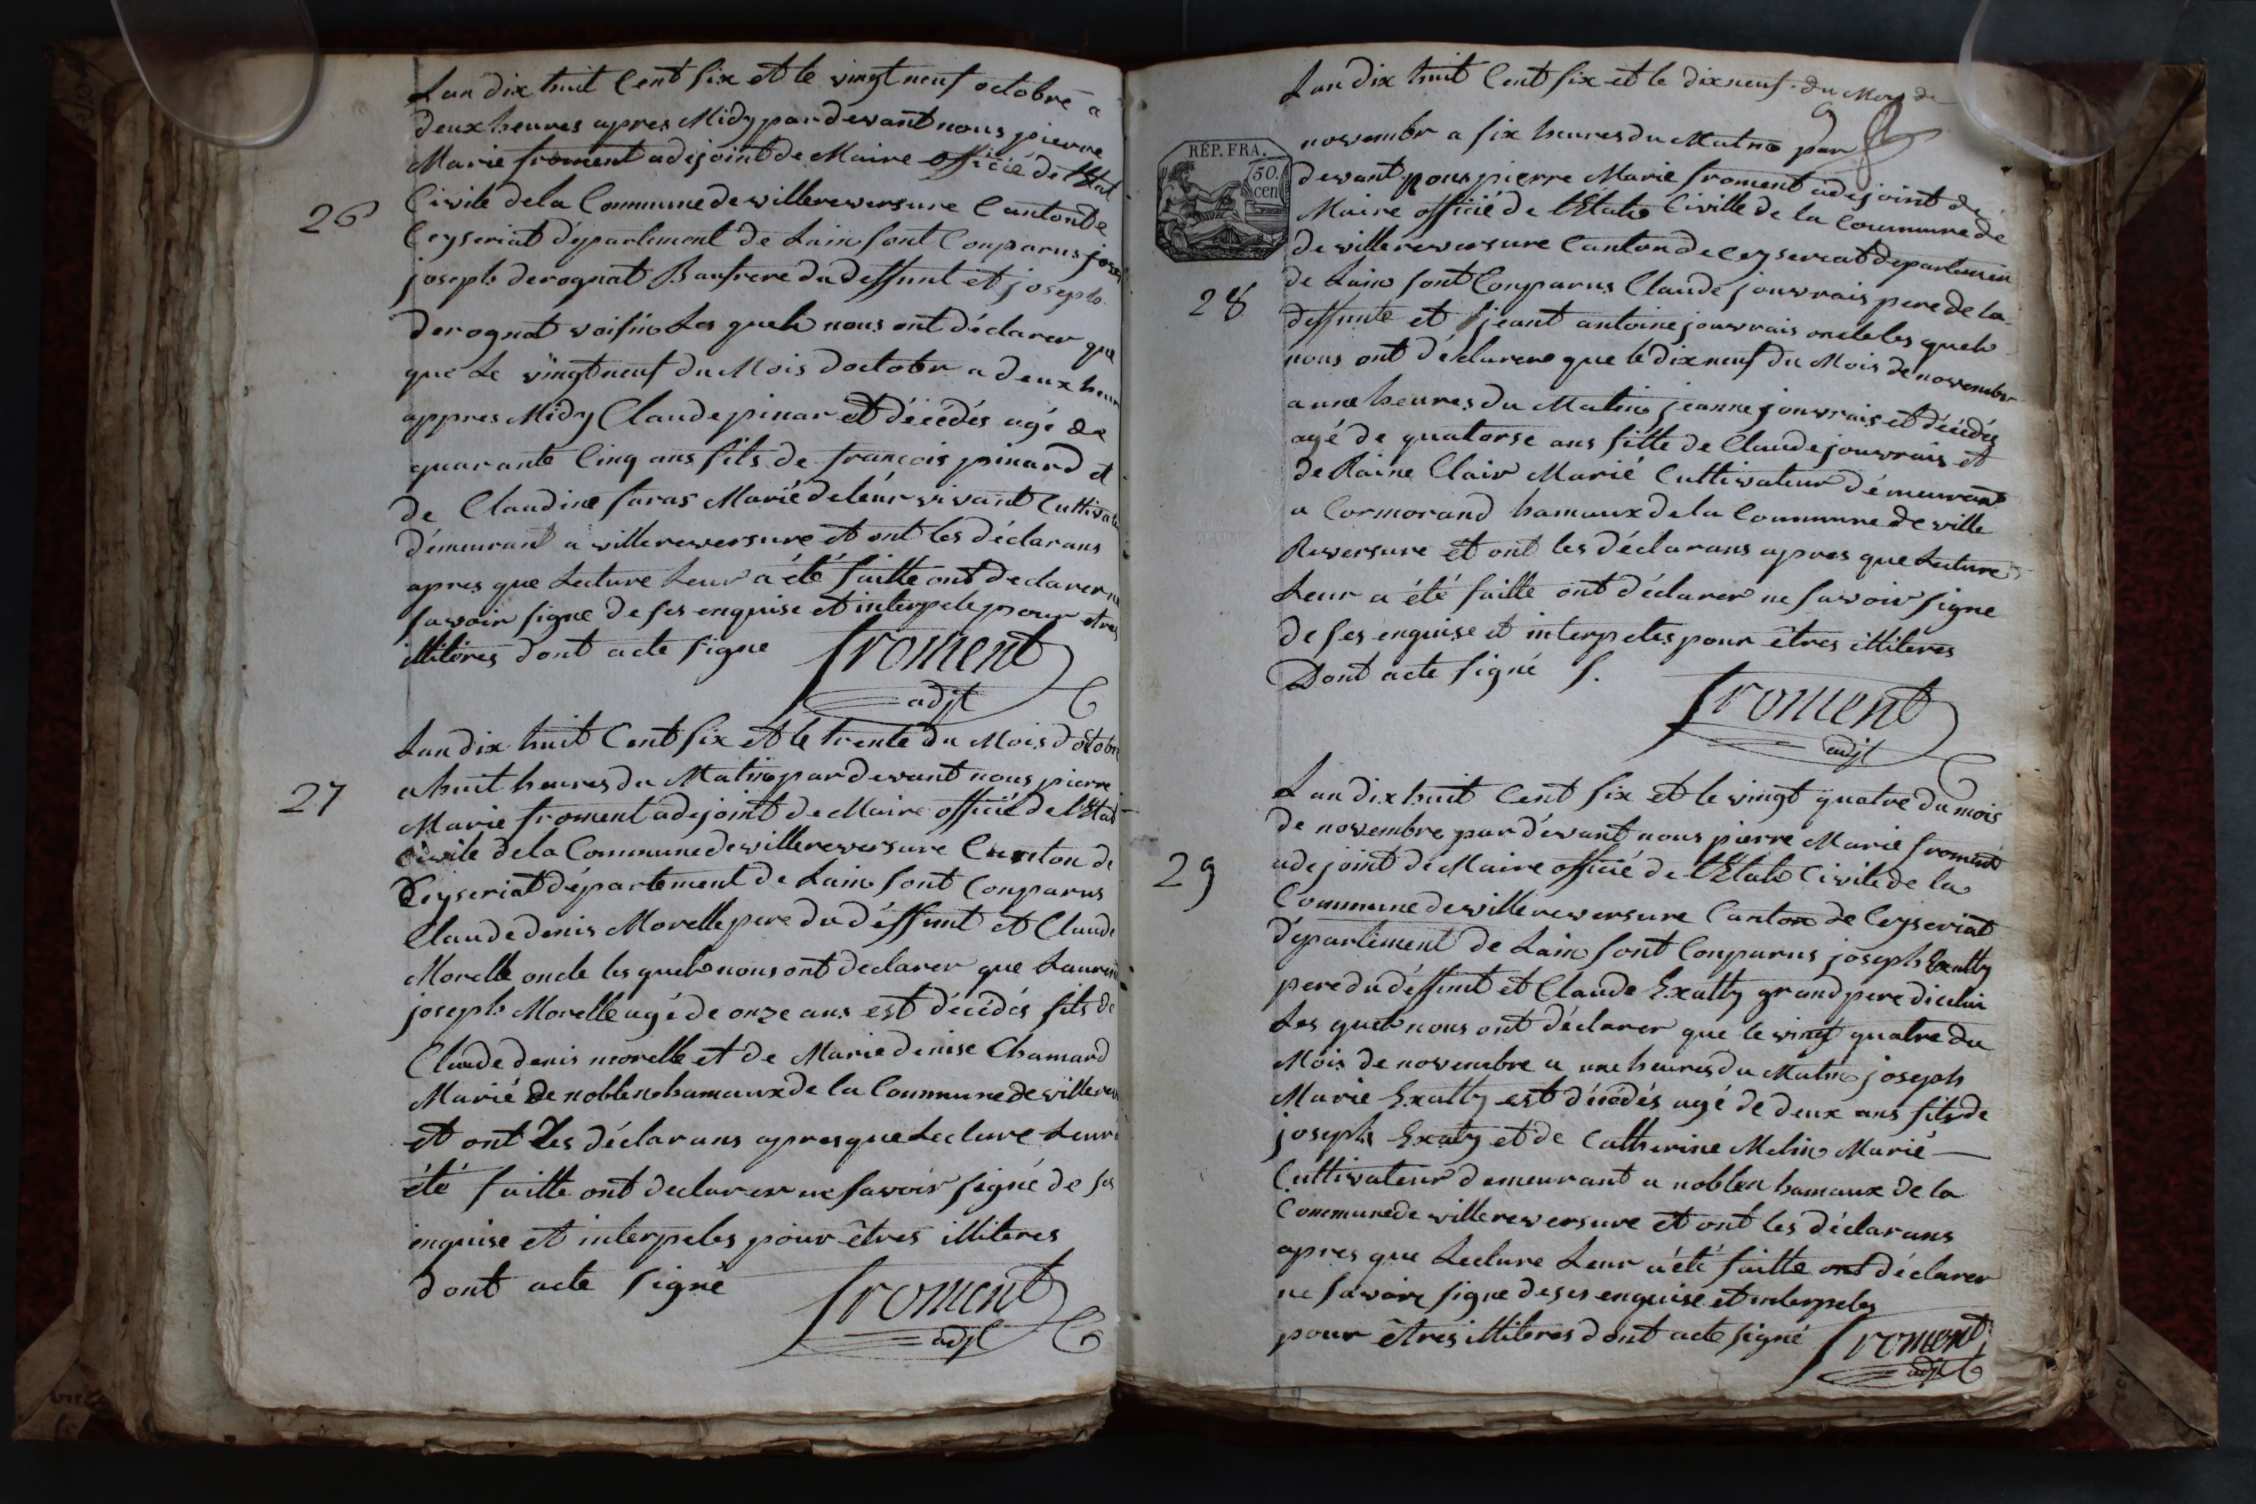 26
Lan dix huit Cent six et le vingt neuf octobre a
deux heures apres Midy par devant nous pierre
Marie froment adejoint de Maire officié de lEtat
Civile de la Commune de villereversure Canton de
Ceyseriat département de Lain sont Conparus
joseph derognat Baufrere du deffunt et joseph
derognat voisin Les quels nous ont déclarer que
que Le vingt neuf du Mois doctobr a deux heur
appres Midy Claude pinar et décédés agé de
quarante Cinq ans fils de françois pinard et
de Claudine faras Marié de leur vivant Cultivat
démeurant a villereversure et ont les déclarans
apres que Lecture Leur a été faitte ont declarer ne
savoir signe de ses enquise et interpele pour etres
illiteres dont acte signe
froment
adjt
27
Lan dix huit Cent six et le trente du Mois doctobr
a huit heures du Matin par devant nous pierre
Marie froment adejoint de Maire officié de lEtat
Civile de la Commune de villereversure Canton de
Ceyseriat département de Lain sont Conparus
Claude denis Morelle pere du déffunt et Claude
Morelle oncle les quels nous ont declarer que Laurent
joseph Morelle agé de onze ans est décédés fils de
Claude denis morelle et de Marie denise Chamard
Marié de noblen hamaux de la Commune de villerev
et ont Les déclarans apres que Lecture Leur
été faitte ont declarer ne savoir signé de ses
enquise et interpeles pour êtres illiteres
dont acte signé
froment
adjt
Lan dix huit Cent six et le dix neuf du Mois de
novembr a six heures du Matin par
RÉP. FRA.
50.
cen
devant nous pierre Marie froment adejoint de
Maire officié de lEtat Civille de la Commune de
de villereversure Canton de Ceyseriat departemen
28
de Lain sont Conparus Claude jouvrais pere de la
deffunte et jeant antoine jouvrais oncle les quels
nous ont déclarere que le dix neuf du Mois de novembr
a une heures du Matin jeanne jouvrais et décédés
agé de quatorse ans fille de Claude jouvrais et
de Raine Clair Marié Cultivateur démeurant
a Cormorand hamaux de la Commune de ville
Reversure et ont les déclarans apres que Lecture
Leur a été faitte ont déclarer ne savoir signe
de ses enquise et interpeles pour êtres illiteres
Dont acte signé f.
froment
adjt
29
Lan dix huit Cent six et le vingt quatre du mois
de novembre par dévant nous pierre Marie froment
adejoint de Maire officié de lEtat Civile de la
Commune de villereversure Canton de Ceyseriat
département de Lain sont Conparus joseph Exatty
pere du déffunt et Claude Exatty grand pere dicelui
Les quels nous ont déclarer que le vingt quatre du
Mois de novembre a une heures du Matin joseph
Marie Exatty est décédés agé de deux ans fils de
joseph Exaty et de Catherine Melin Marié
Cultivateur demeurant a noblen hamaux de la
Commune de villereversure et ont les déclarans
apres que Lecture Leur a été faitte ont déclarer
ne savoire signe de ses enquise et interpeles
pour êtres illiteres dont acte signé froment
adjt